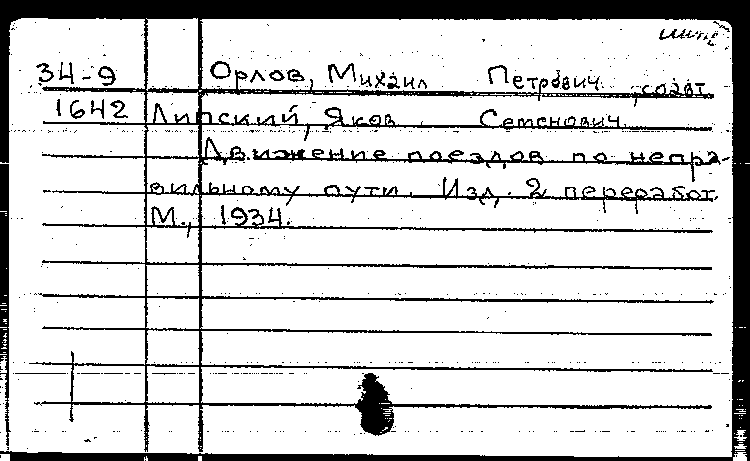 34-9 Орлов, Михаил Петрович, соавт.
1642 Липский, Яков Семенович.
Движение поездов по непра-
вильному пути. Изд. 2 переработ.
М., 1934.